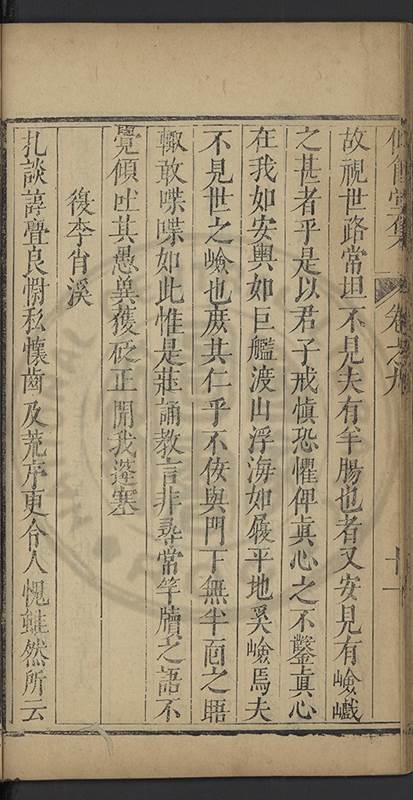 卷之九
十一
故視世路常坦不見夫有羊腸也者又安見有嶮巇
之甚者乎是以君子戒慎恐懼俾真心之不鑿真心
在我如安輿如巨艦渡山浮海如履平地奚嶮焉夫
不見世之嶮也庶其仁乎不佞與門下無半面之晤
輙敢喋喋如此惟是莊誦教言非尋常竿牘之語不
覺傾吐其愚兾獲砭正開我蓬塞
復李肖溪
扎談諄疊良慰私懷齒及荒序更令人愧雖然所云